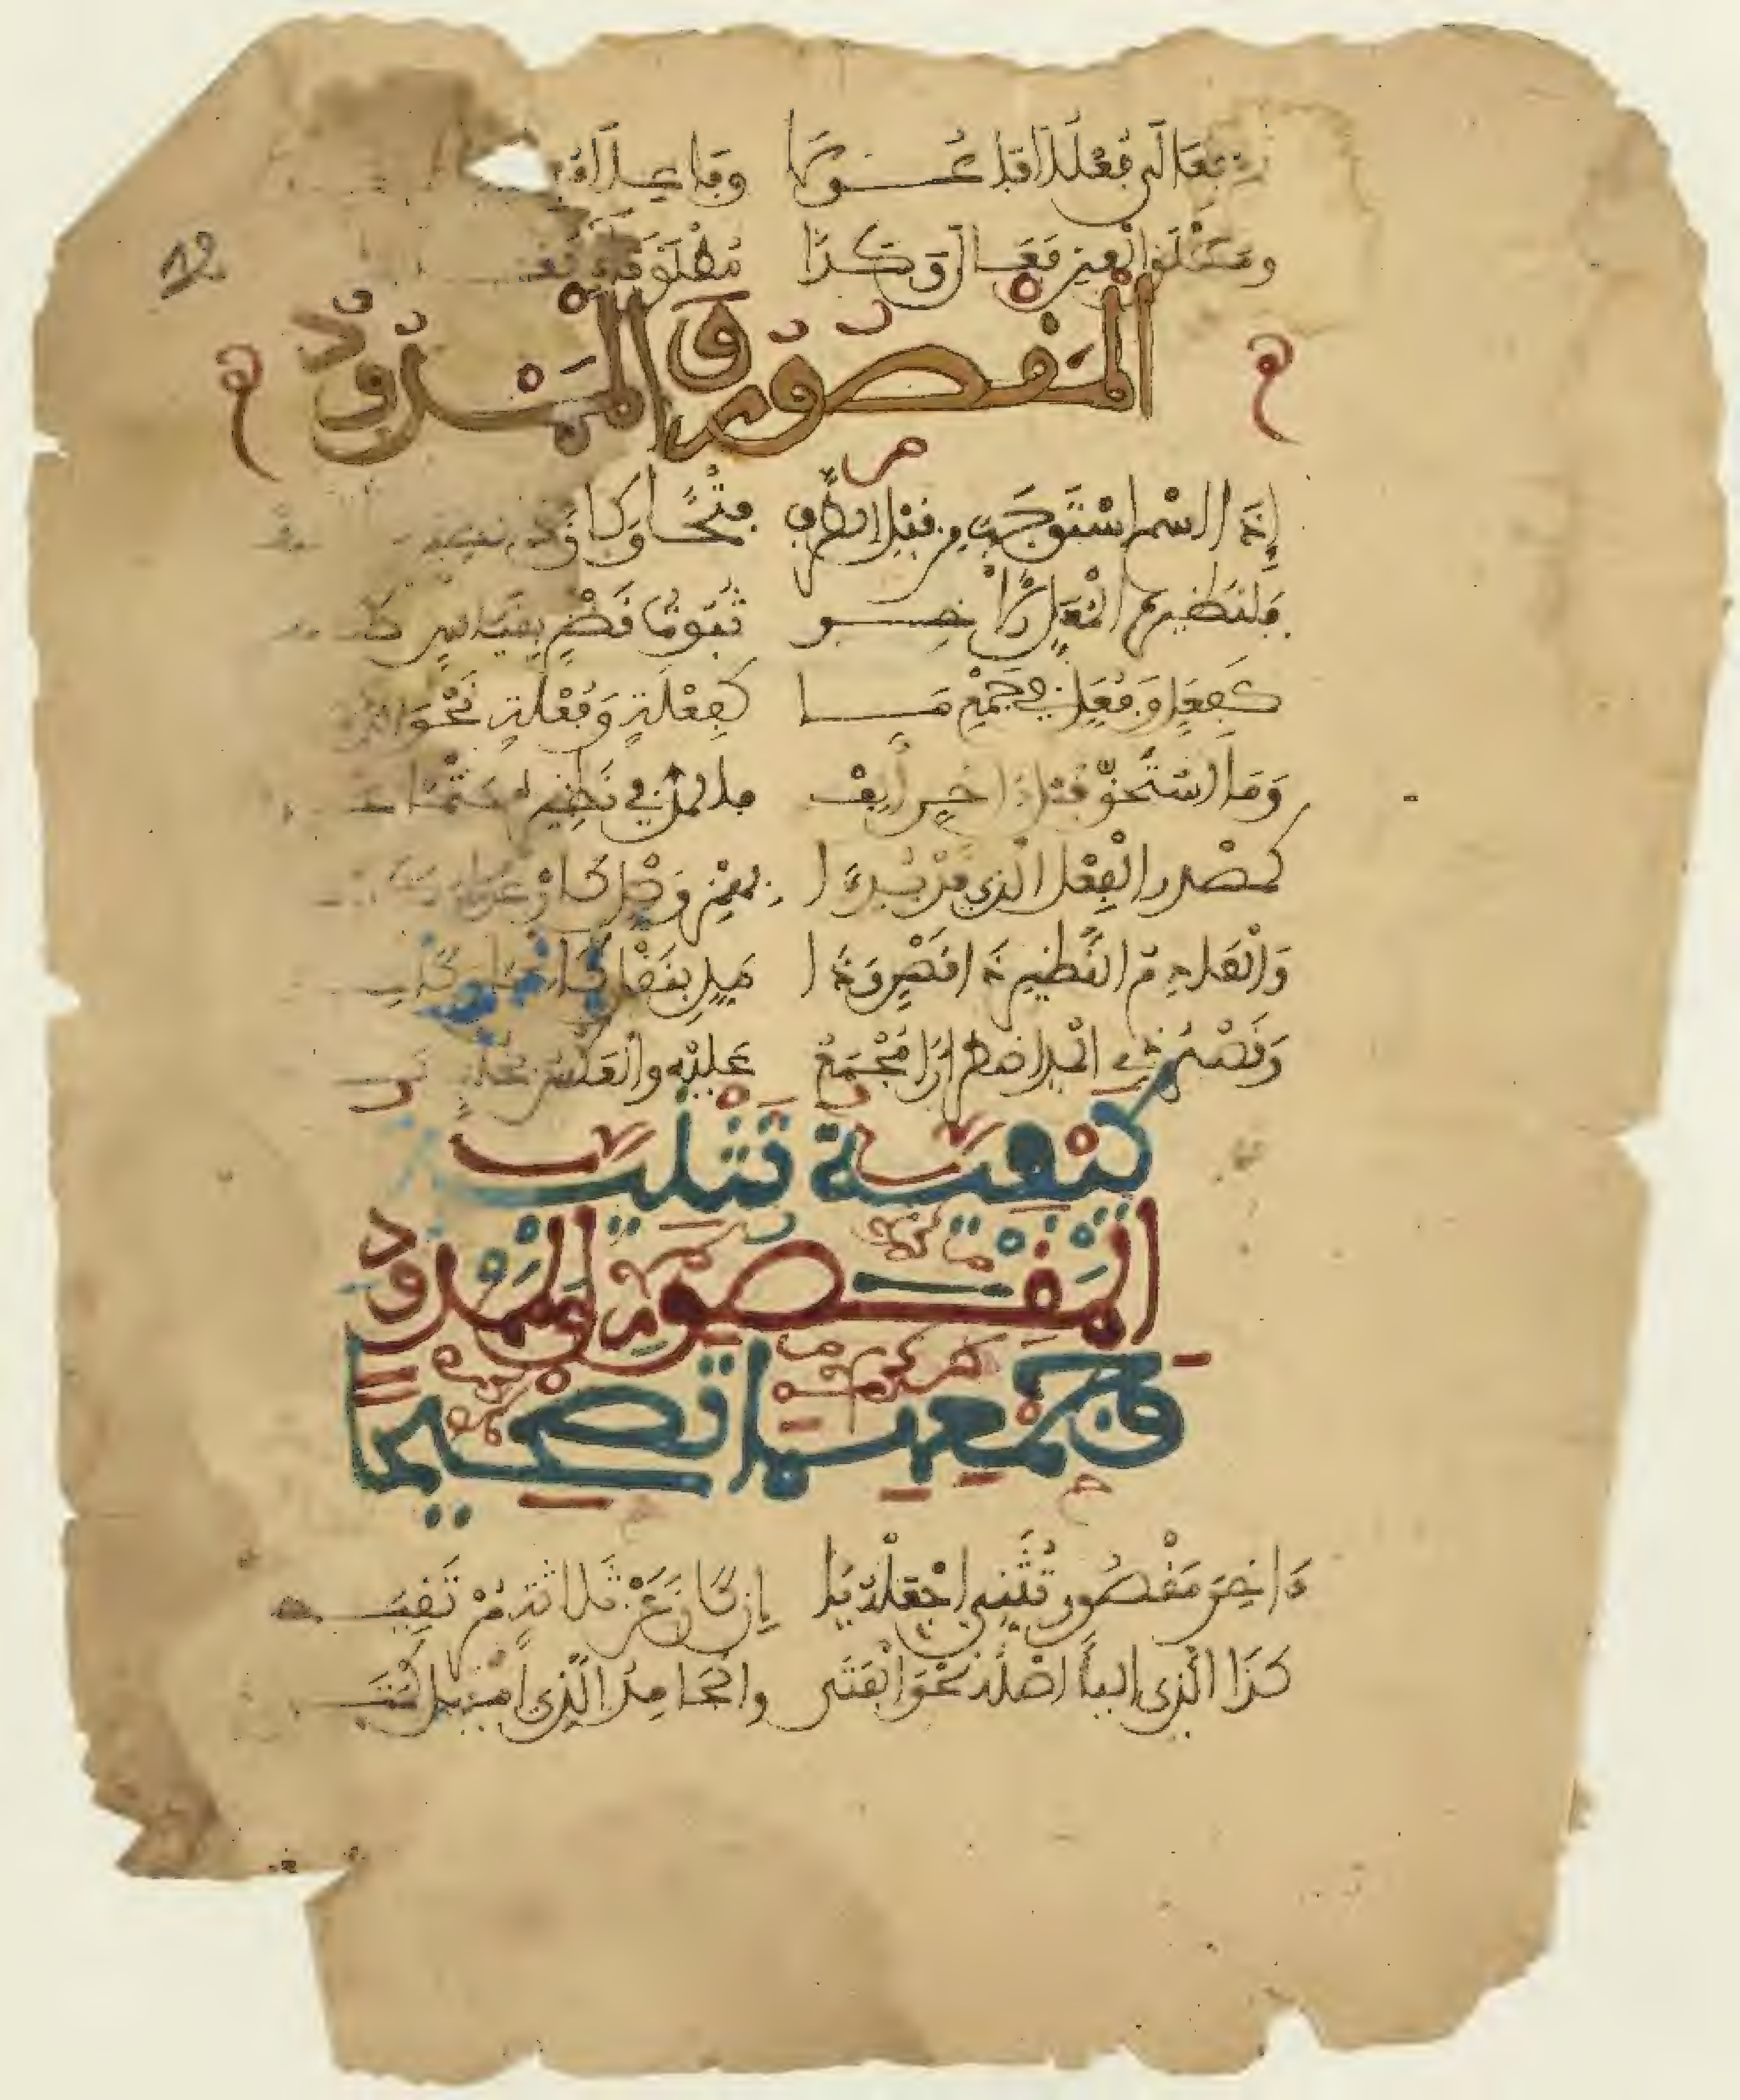 فعالى فعللا فاعولا وفاعلاء
ومطلق العين فعالا وكذا مطلق فاء
المقصور والممدود
إذا اسم استوجب من قبل الطرف فتحا وكان ذا نظير
فلنظيره المعل الآخر ثبوت قصر بقياس
كفعل وفعل في جمع ما كفعلة وفعلة نحو الدمى
وما استحق قبل آخر ألف فالمد في نظيره حتما
كمصدر الفعل الذي قد بدئا بهمز وصل كارعوى
والعادم النظير ذا قصر وذا مد بنقل كالحجا وكالحذا
وقصر ذي المد اضطرارا مجمع عليه والعكس بخلف
كيفية تثنية
المقصور والممدود
وجمعهما تصحيحا
ءاخر مقصور تثني اجعله يا إن كان عن ثلاثة مرتقيا
كذا الذي اليا أصله نحو الفتى والجامد الذي أميل كمتى